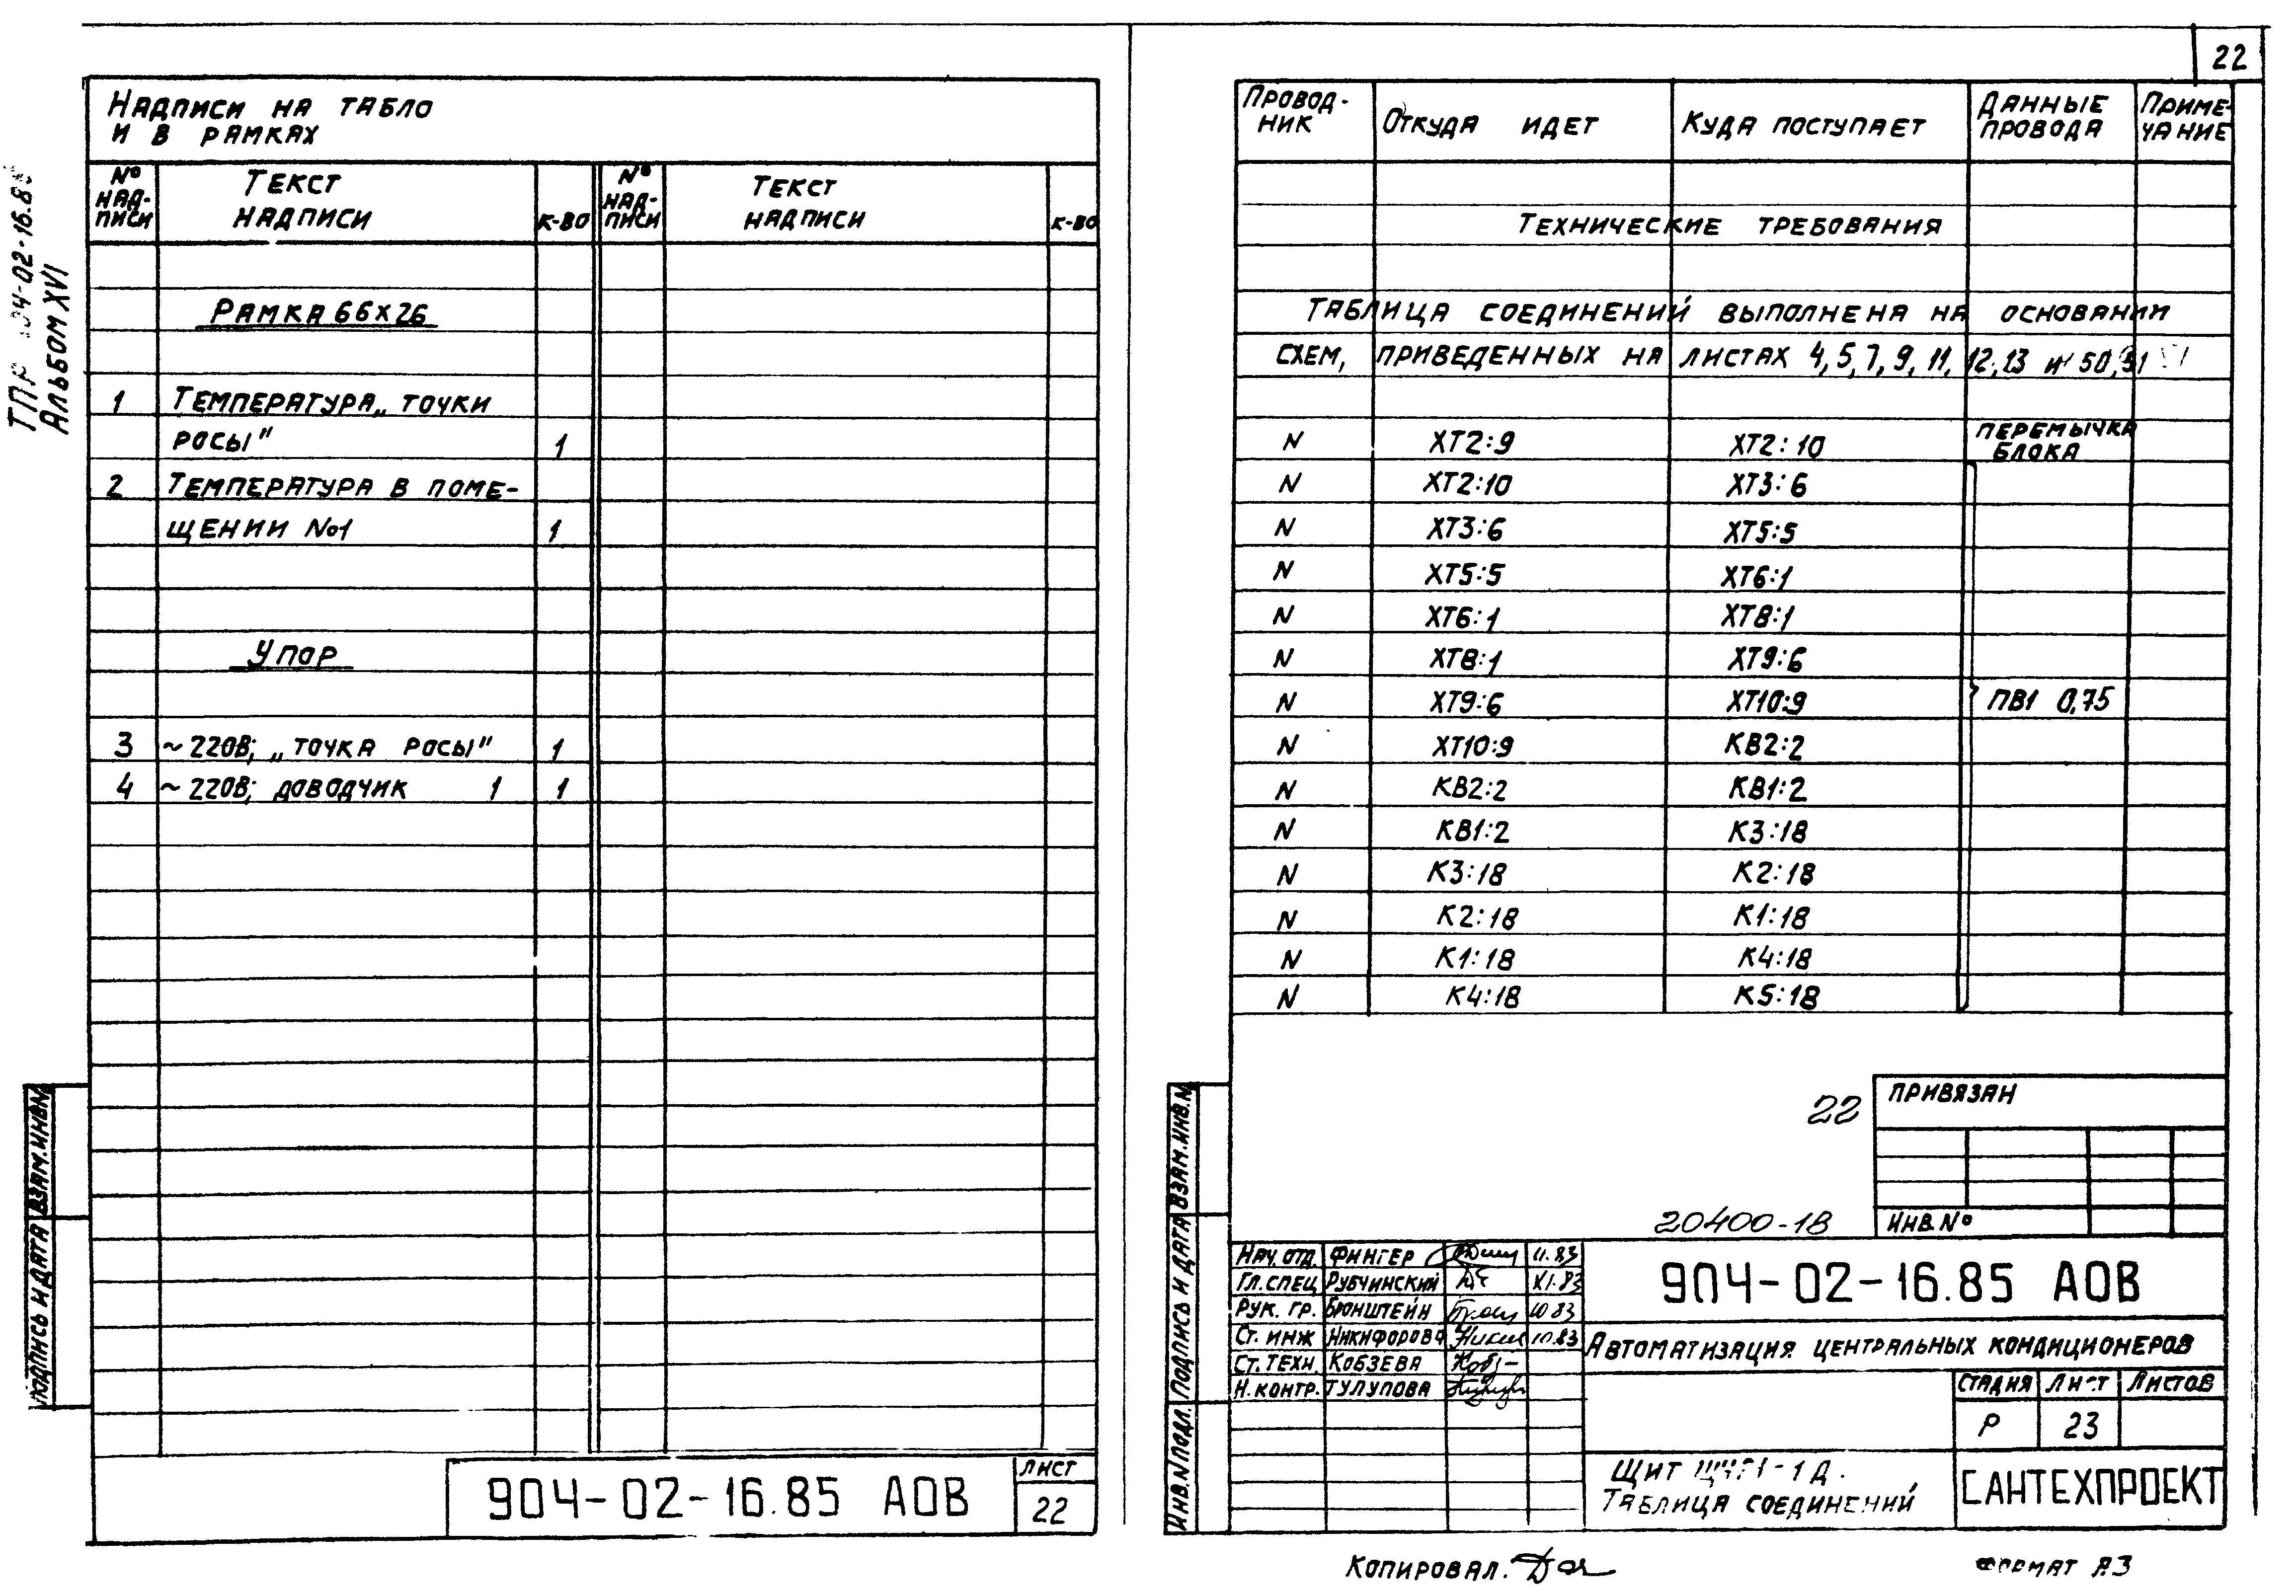 22
ТПР 904-02-16.85
Альбом XVI
Надписи на табло
и в рамках
№ надписи | Текст надписи | к-во | № надписи | Текст надписи | к-во
Рамка 66х26
1 Температура „точки
росы" 1
2 Температура в поме-
щении №1 1
Упор
3 ~220В; „точка росы" 1
4 ~220В; доводчик 1 1
904-02-16.85 АОВ
Лист
22
Взам. инв.N
Подпись и дата
Провод-
ник | Откуда идет | Куда поступает | Данные
провода | Приме-
чание
Технические требования
Таблица соединений выполнена на основании
схем, приведенных на листах 4, 5, 7, 9, 11, 12, 13 и 50, 51
N ХТ2:9 ХТ2:10 перемычка
блока
N ХТ2:10 ХТ3:6
N ХТ3:6 ХТ5:5
N ХТ5:5 ХТ6:1
N ХТ6:1 ХТ8:1
N ХТ8:1 ХТ9:6
N ХТ9:6 ХТ10:9 ПВ1 0,75
N ХТ10:9 КВ2:2
N КВ2:2 КВ1:2
N КВ1:2 К3:18
N К3:18 К2:18
N К2:18 К1:18
N К1:18 К4:18
N К4:18 К5:18
22
Привязан
20400-18
Инв. №
Взам. инв.N
Подпись и дата
Инв.N подл.
Нач. отд. Фингер 11.83
Гл. спец Рубчинский XI.83
Рук. гр. Бронштейн 10 83
Ст. инж Никифорова 10.83
Ст. техн. Кобзева
Н. контр. Тулупова
904-02-16.85 АОВ
Автоматизация центральных кондиционеров
Стадия Лист Листов
Р 23
Щит 1Д.
Таблица соединений
САНТЕХПРОЕКТ
Копировал.
Формат А3